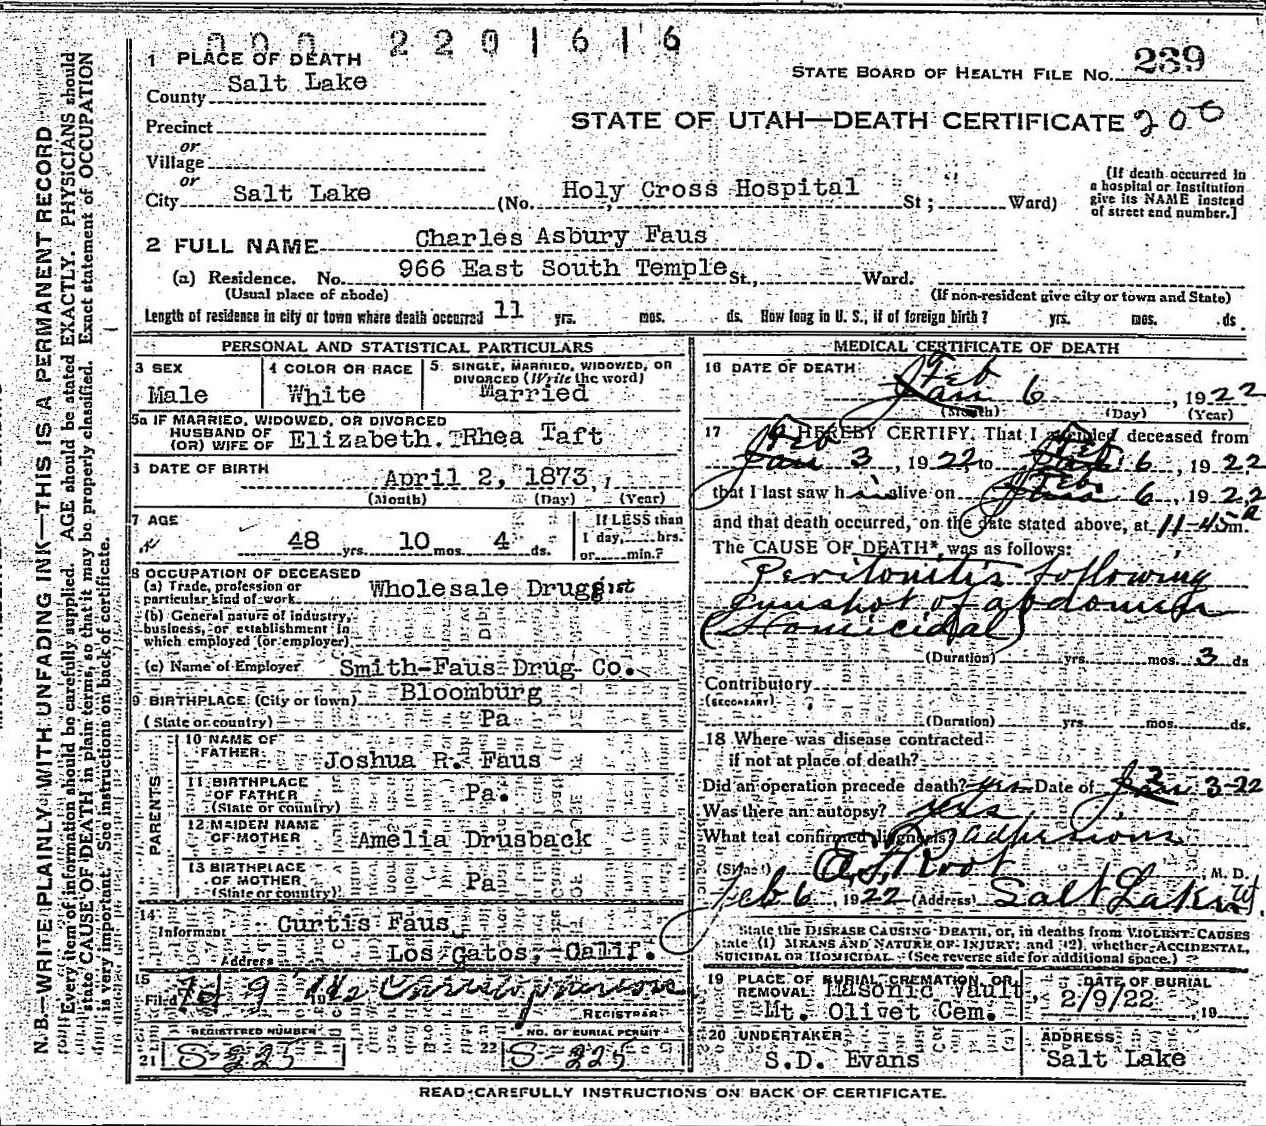 000 2201616
1 PLACE OF DEATH
STATE BOARD OF HEALTH FILE No. 239
County Salt Lake
Precinct
or
STATE OF UTAH—DEATH CERTIFICATE 200
Village
or
City Salt Lake (No. Holy Cross Hospital St; Ward)
(If death occurred in
a hospital or institution
give its NAME instead
of street and number.]
2 FULL NAME Charles Asbury Faus
(a) Residence. No. 966 East South Temple St., Ward.
(Usual place of abode) (If non-resident give city or town and State)
Length of residence in city or town where death occurred 11 yrs. mos. ds. How long in U. S., if of foreign birth? yrs. mos. ds
PERSONAL AND STATISTICAL PARTICULARS
3 SEX
Male
4 COLOR OR RACE
White
5 SINGLE, MARRIED, WIDOWED, OR
DIVORCED (Write the word)
Married
5a IF MARRIED, WIDOWED, OR DIVORCED
HUSBAND OF
(OR) WIFE OF Elizabeth. Rhea Taft
6 DATE OF BIRTH
April 2, 1873,
(Month) (Day) (Year)
7 AGE
48 yrs. 10 mos. 4 ds.
If LESS than
1 day, hrs.
or min.?
8 OCCUPATION OF DECEASED
(a) Trade, profession or
particular kind of work Wholesale Druggist
(b) General nature of industry,
business, or establishment in
which employed (or employer)
(c) Name of Employer Smith-Faus Drug Co.
9 BIRTHPLACE (City or town) Bloomburg
(State or country) Pa
PARENTS
10 NAME OF
FATHER Joshua R. Faus
11 BIRTHPLACE
OF FATHER
(State or country) Pa.
12 MAIDEN NAME
OF MOTHER Amelia Drusback
13 BIRTHPLACE
OF MOTHER
(State or country) Pa
14
Informant Curtis Faus
Address Los Gatos, Calif.
15
Filed 9
REGISTRAR
REGISTERED NUMBER
21 S-225
NO. OF BURIAL PERMIT
22 S-225
MEDICAL CERTIFICATE OF DEATH
16 DATE OF DEATH
Feb
Jan 6, 1922
(Month) (Day) (Year)
17 I HEREBY CERTIFY, That I attended deceased from
Feb Feb
Jan 3, 1922 to Jan 6, 1922
that I last saw h is alive on Feb. Jan 6, 1922
and that death occurred, on the date stated above, at 11-45 a m.
The CAUSE OF DEATH*, was as follows:
Peritonitis following
gunshot of abdomen
(Homicidal)
(Duration) yrs. mos. 3 ds
Contributory
(SECONDARY)
(Duration) yrs. mos. ds.
18 Where was disease contracted
if not at place of death?
Did an operation precede death? yes Date of 2 Jan 3-22
Was there an autopsy? yes
What test confirmed diagnosis?
(Signed) Root, M. D.
Feb 6, 1922 (Address) Salt Lake Ut.
State the DISEASE CAUSING DEATH, or, in deaths from VIOLENT CAUSES
state (1) MEANS AND NATURE OF INJURY; and (2), whether ACCIDENTAL,
SUICIDAL OR HOMICIDAL. (See reverse side for additional space.)
19 PLACE OF BURIAL, CREMATION, OR
REMOVAL Masonic Vault,
Mt. Olivet Cem.
DATE OF BURIAL
2/9/22, 19
20 UNDERTAKER
S.D. Evans
ADDRESS
Salt Lake
READ CAREFULLY INSTRUCTIONS ON BACK OF CERTIFICATE.
N. B.—WRITE PLAINLY WITH UNFADING INK—THIS IS A PERMANENT RECORD
Every item of information should be carefully supplied. AGE should be stated EXACTLY. PHYSICIANS should
state CAUSE OF DEATH in plain terms, so that it may be properly classified. Exact statement of OCCUPATION
is very important. See instructions on back of certificate.